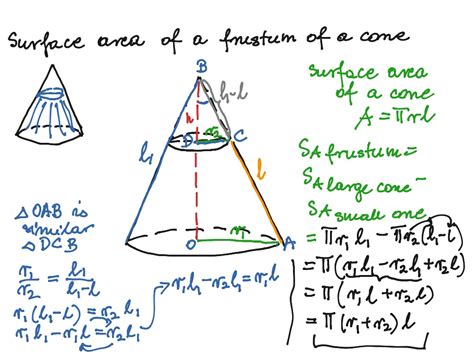 Surface area of a frustum of a cone
B
h
l₁-l
r₂
D
C
l₁
l
O
r₁
A
surface area
of a cone
A = πrl
SA frustum =
SA large cone -
SA small one
= πr₁l₁ - πr₂(l₁-l)
= π(r₁l₁ - r₂l₁ + r₂l)
= π(r₁l + r₂l)
= π(r₁+r₂)l
△ OAB is
similar
△ DCB
r₁/r₂ = l₁/(l₁-l)
r₁(l₁-l) = r₂l₁
r₁l₁ - r₁l = r₂l₁
r₁l₁ - r₂l₁ = r₁l